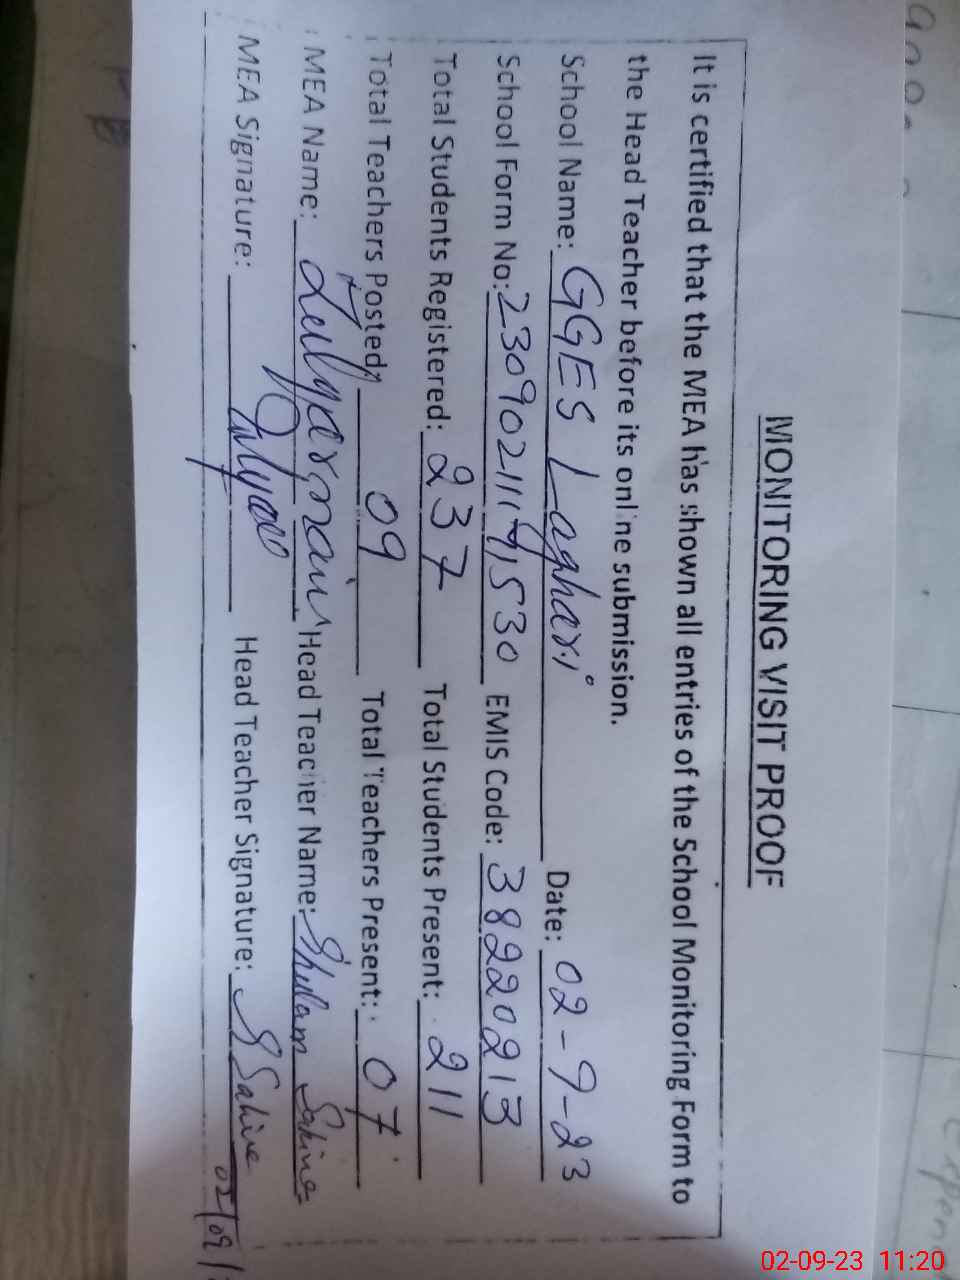 MONITORING VISIT PROOF
It is certified that the MEA has shown all entries of the School Monitoring Form to
the Head Teacher before its online submission.
School Name: GGES Laghari Date: 02-9-23
School Form No: EMIS Code: 38220213
Total Students Registered: 237 Total Students Present: 211
Total Teachers Posted: 09 Total Teachers Present: 07
MEA Name: Head Teacher Name: Sakina
MEA Signature: Head Teacher Signature: S Sakina
02/09/
02-09-23 11:20